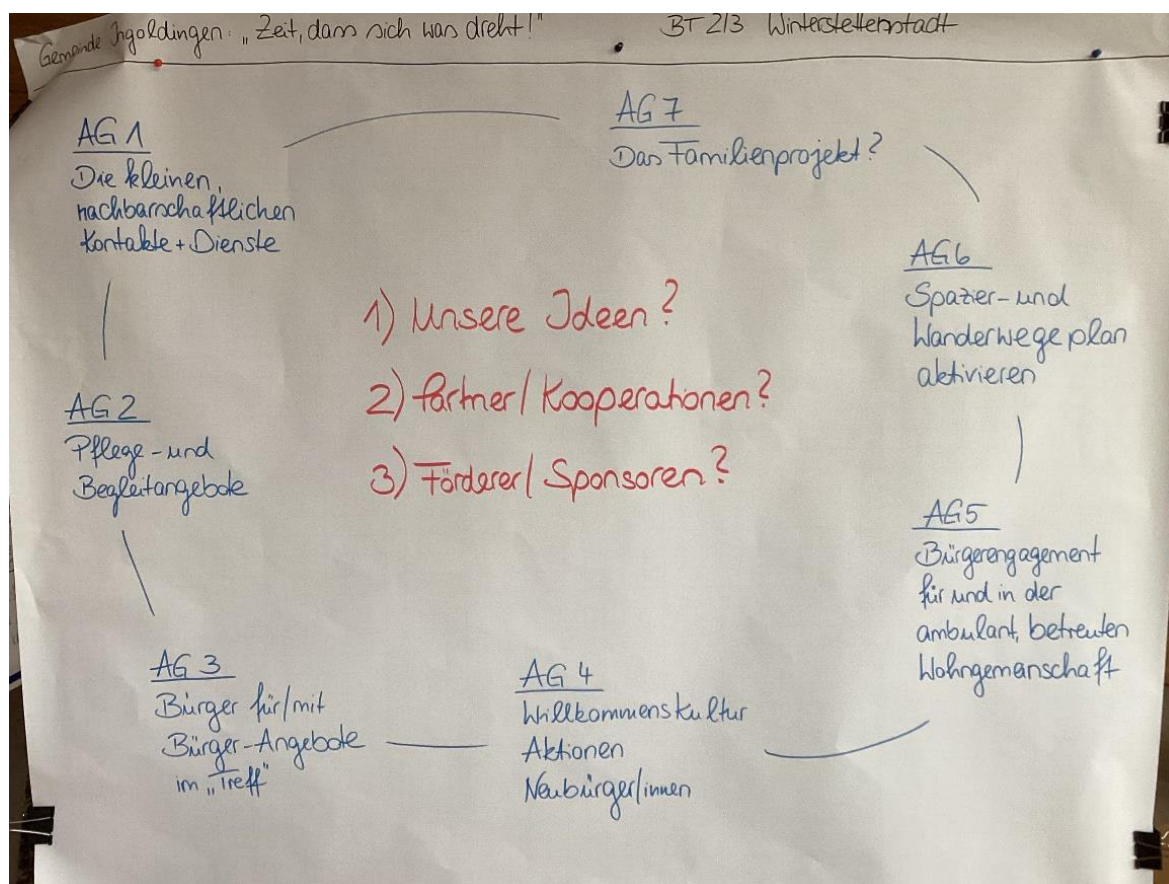 Gemeinde Ingoldingen: „Zeit, dass sich was dreht!" BT 2/3 Winterstettenstadt
AG 1
Die kleinen,
nachbarschaftlichen
Kontakte + Dienste
AG 7
Das Familienprojekt?
AG6
Spazier- und
Wanderwegeplan
aktivieren
1) Unsere Ideen?
2) Partner/Kooperationen?
3) Förderer/Sponsoren?
AG 2
Pflege- und
Begleitangebote
AG5
Bürgerengagement
für und in der
ambulant, betreuten
Wohngemeinschaft
AG 3
Bürger für/mit
Bürger-Angebote
im „Treff"
AG 4
Willkommenskultur
Aktionen
Neubürger/innen